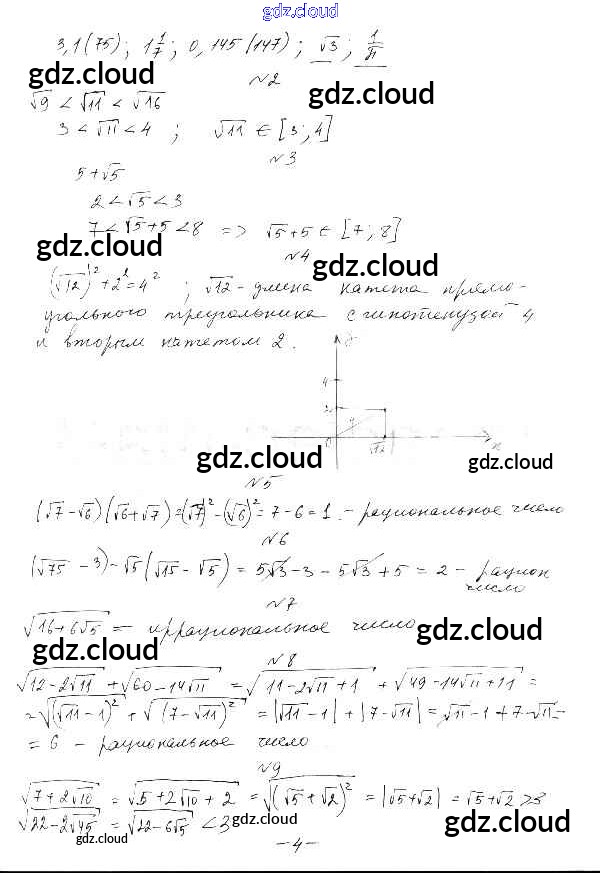 gdz.cloud
3,1(75); 1 1/7; 0,145(147); √3; 1/π
gdz.cloud gdz.cloud
№2
√9 < √11 < √16
3 < √11 < 4 ; √11 ∈ [3; 4]
№3
5+√5
2 < √5 < 3
7 < √5+5 < 8 => √5+5 ∈ [7; 8]
gdz.cloud gdz.cloud
№4
(√12)² + 2² = 4² ; √12 - длина катета прямо-
угольного треугольника с гипотенузой 4
и вторым катетом 2.
gdz.cloud gdz.cloud
y
4
2
0 √12 x
gdz.cloud gdz.cloud
№5
(√7-√6)(√6+√7)=(√7)²-(√6)²= 7-6=1 - рациональное число
gdz.cloud gdz.cloud
№6
(√75 -3)-√5(√15-√5) = 5√3-3-5√3+5 = 2 - рацион
число
№7
√16+6√5 = иррациональное число
gdz.cloud gdz.cloud
№8
√12-2√11 + √60-14√11 = √11-2√11+1 + √49-14√11+11 =
=√(√11-1)² + √(7-√11)² = |√11-1|+|7-√11|= √11-1+7-√11=
= 6 - рациональное число
gdz.cloud gdz.cloud
№9
√7+2√10 = √5+2√10+2 = √(√5+√2)² = |√5+√2| = √5+√2 >3
√22-2√45 = √22-6√5 <3
gdz.cloud gdz.cloud
-4-
gdz.cloud